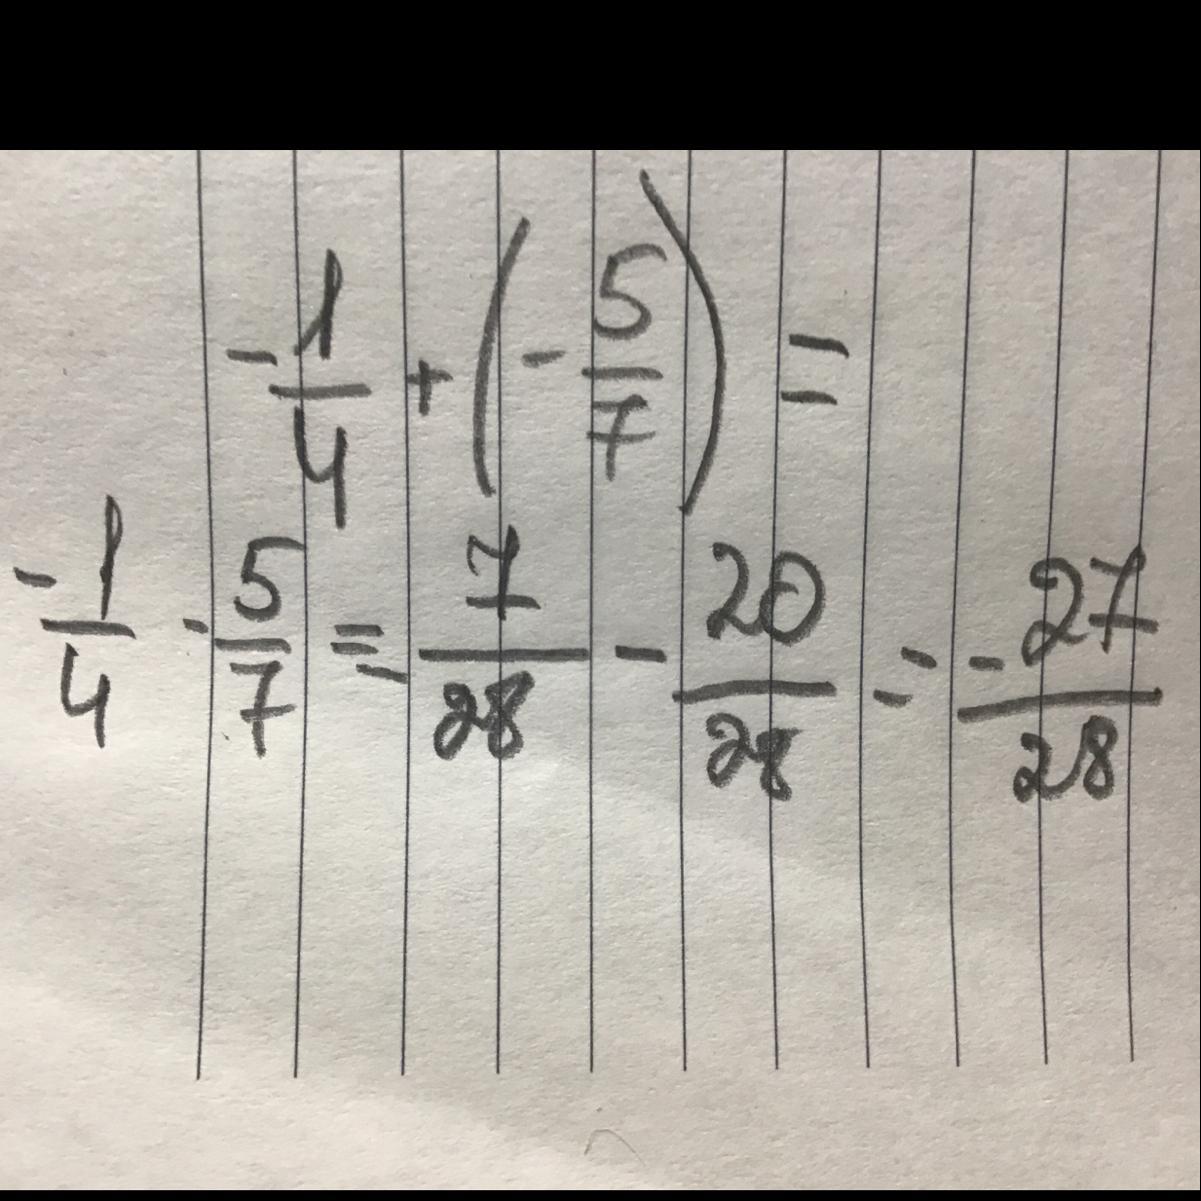 -1/4 + (-5/7) =
-1/4 - 5/7 = -7/28 - 20/28 = -27/28